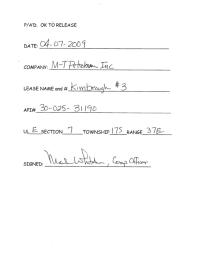 P/A'D. OK TO RELEASE
DATE: 04-07-2009
COMPANY: M-T Petroleum Inc
LEASE NAME and #: Kimbrough #3
API# 30-025-31190
UL E SECTION 7 TOWNSHIP 17S RANGE 37E
SIGNED: Mark Whitaker, Comp Officer